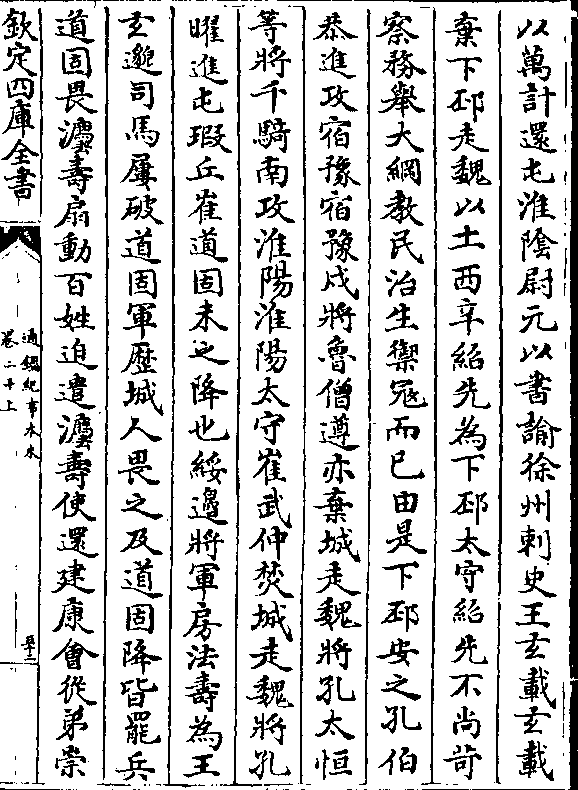 以萬計還屯淮陰尉元以書諭徐州刺史王玄載玄載
棄下邳走魏以土西辛紹先為下邳太守紹先不尚苛
察務舉大綱教民治生禦冦而已由是下邳安之孔伯
恭進攻宿豫宿豫戍將魯僧遵亦棄城走魏將孔太恒
等將千騎南攻淮陽淮陽太守崔武仲焚城走魏將孔
曜進屯瑕丘崔道固未之降也綏邉將軍房法壽為王
玄邈司馬屢破道固軍歴城人畏之及道固降皆罷兵
道固畏灋壽扇動百姓迫遣灋壽使還建康會從弟崇
欽定四庫全書
通鑑紀事本末
卷二十上